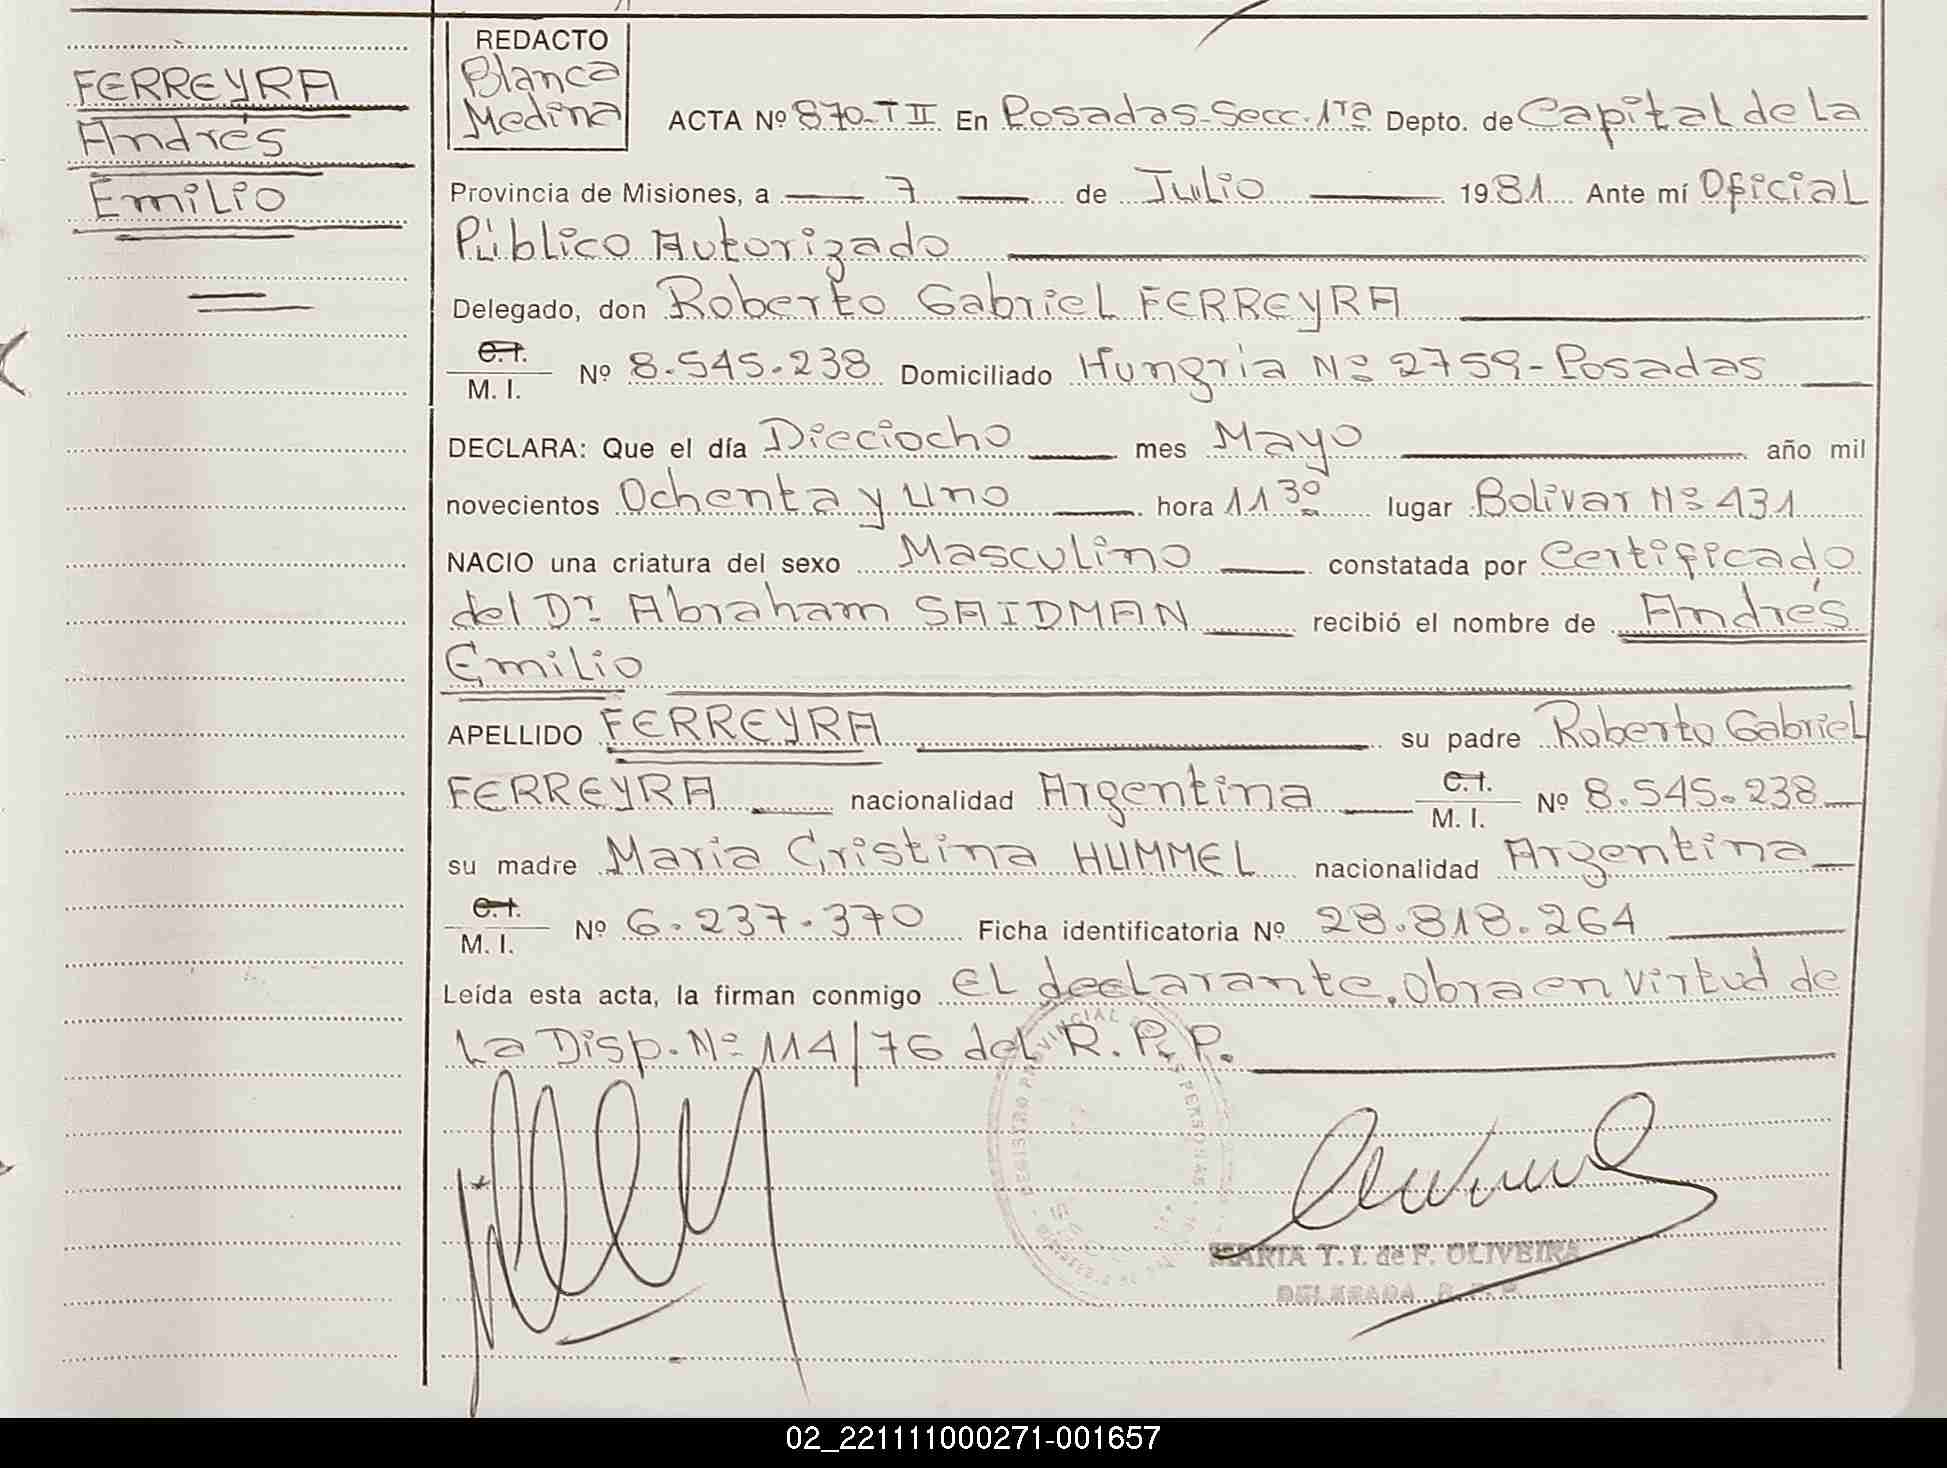 FERREYRA
Andrés
Emilio
REDACTO
Blanca
Medina
ACTA Nº 870-T II En Posadas-Secc. 1ra Depto. de Capital de La
Provincia de Misiones, a 7 de Julio 1981 Ante mí Oficial
Público Autorizado
Delegado, don Roberto Gabriel FERREYRA
C.I.
M. I. Nº 8.545.238 Domiciliado Hungria Nº 2759-Posadas
DECLARA: Que el día Dieciocho mes Mayo año mil
novecientos Ochenta y uno hora 11 30 lugar Bolivar Nº 431
NACIO una criatura del sexo Masculino constatada por Certificado
del Dr. Abraham SAIDMAN recibió el nombre de Andrés
Emilio
APELLIDO FERREYRA su padre Roberto Gabriel
FERREYRA nacionalidad Argentina C.I.
M. I. Nº 8.545.238
su madre Maria Cristina HUMMEL nacionalidad Argentina
C.I.
M. I. Nº 6.237.370 Ficha identificatoria Nº 28.818.264
Leída esta acta, la firman conmigo el declarante. Obra en virtud de
La Disp. Nº 114/76 del R. P. P.
REGISTRO PROVINCIAL PERSONAS
MARIA T. I. de F. OLIVEIRA
DELEGADA
02_221111000271-001657